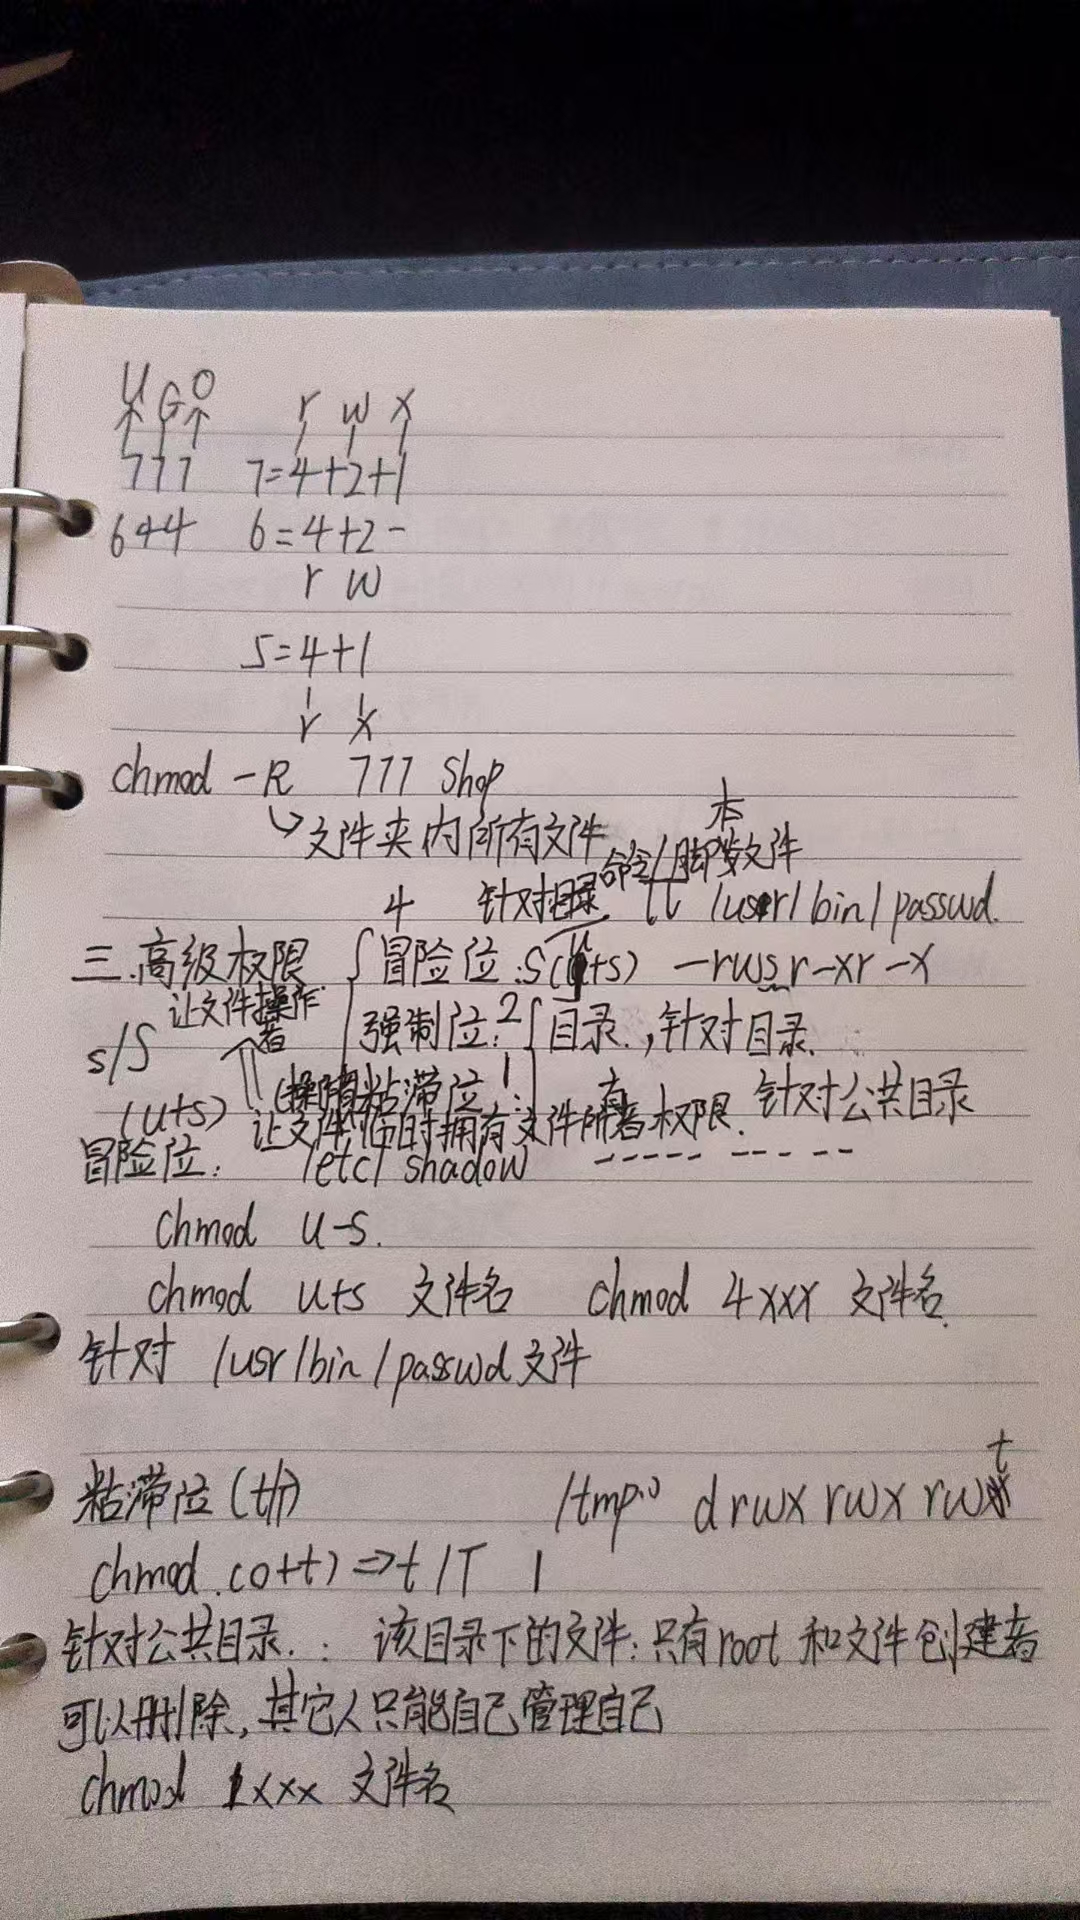 U G O r w x
777 7=4+2+1
644 6=4+2-
r w
5=4+1
r x
chmod -R 777 Shop
文件夹内所有文件 本
命令/脚 文件
4 针对目录 /usr/bin/passwd.
三.高级权限 冒险位:S(u+s) -rwsr-xr-x
让文件操作者
强制位:2 目录.,针对目录.
s/S
粘滞位:1 针对公共目录
(u+s) 让文件临时拥有文件所有者权限.
冒险位: /etc/shadow ----- --- --
chmod u-s.
chmod u+s 文件名 chmod 4xxx 文件名.
针对 /usr/bin/passwd文件
t
粘滞位(t/T) /tmp drwxrwxrw
chmod.(o+t)=>t/T 1
针对公共目录.: 该目录下的文件:只有root和文件创建者
可以删除,其它人只能自己管理自己
chmod 1xxx 文件名